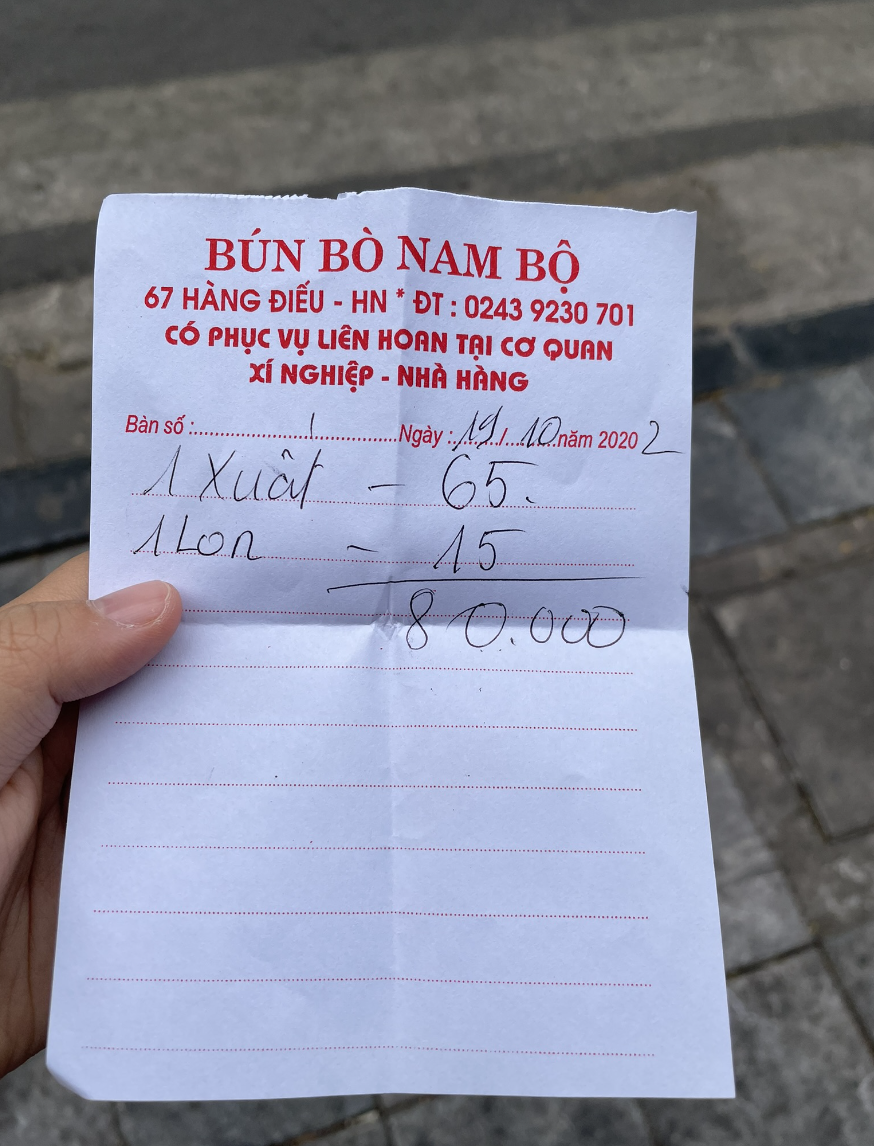 BÚN BÒ NAM BỘ
67 HÀNG ĐIẾU - HN * ĐT : 0243 9230 701
CÓ PHỤC VỤ LIÊN HOAN TẠI CƠ QUAN
XÍ NGHIỆP - NHÀ HÀNG
Bàn số :..........1..........Ngày :..19../..10..năm 2020 2
1 Xuất - 65.
1 Lon - 15
80.000